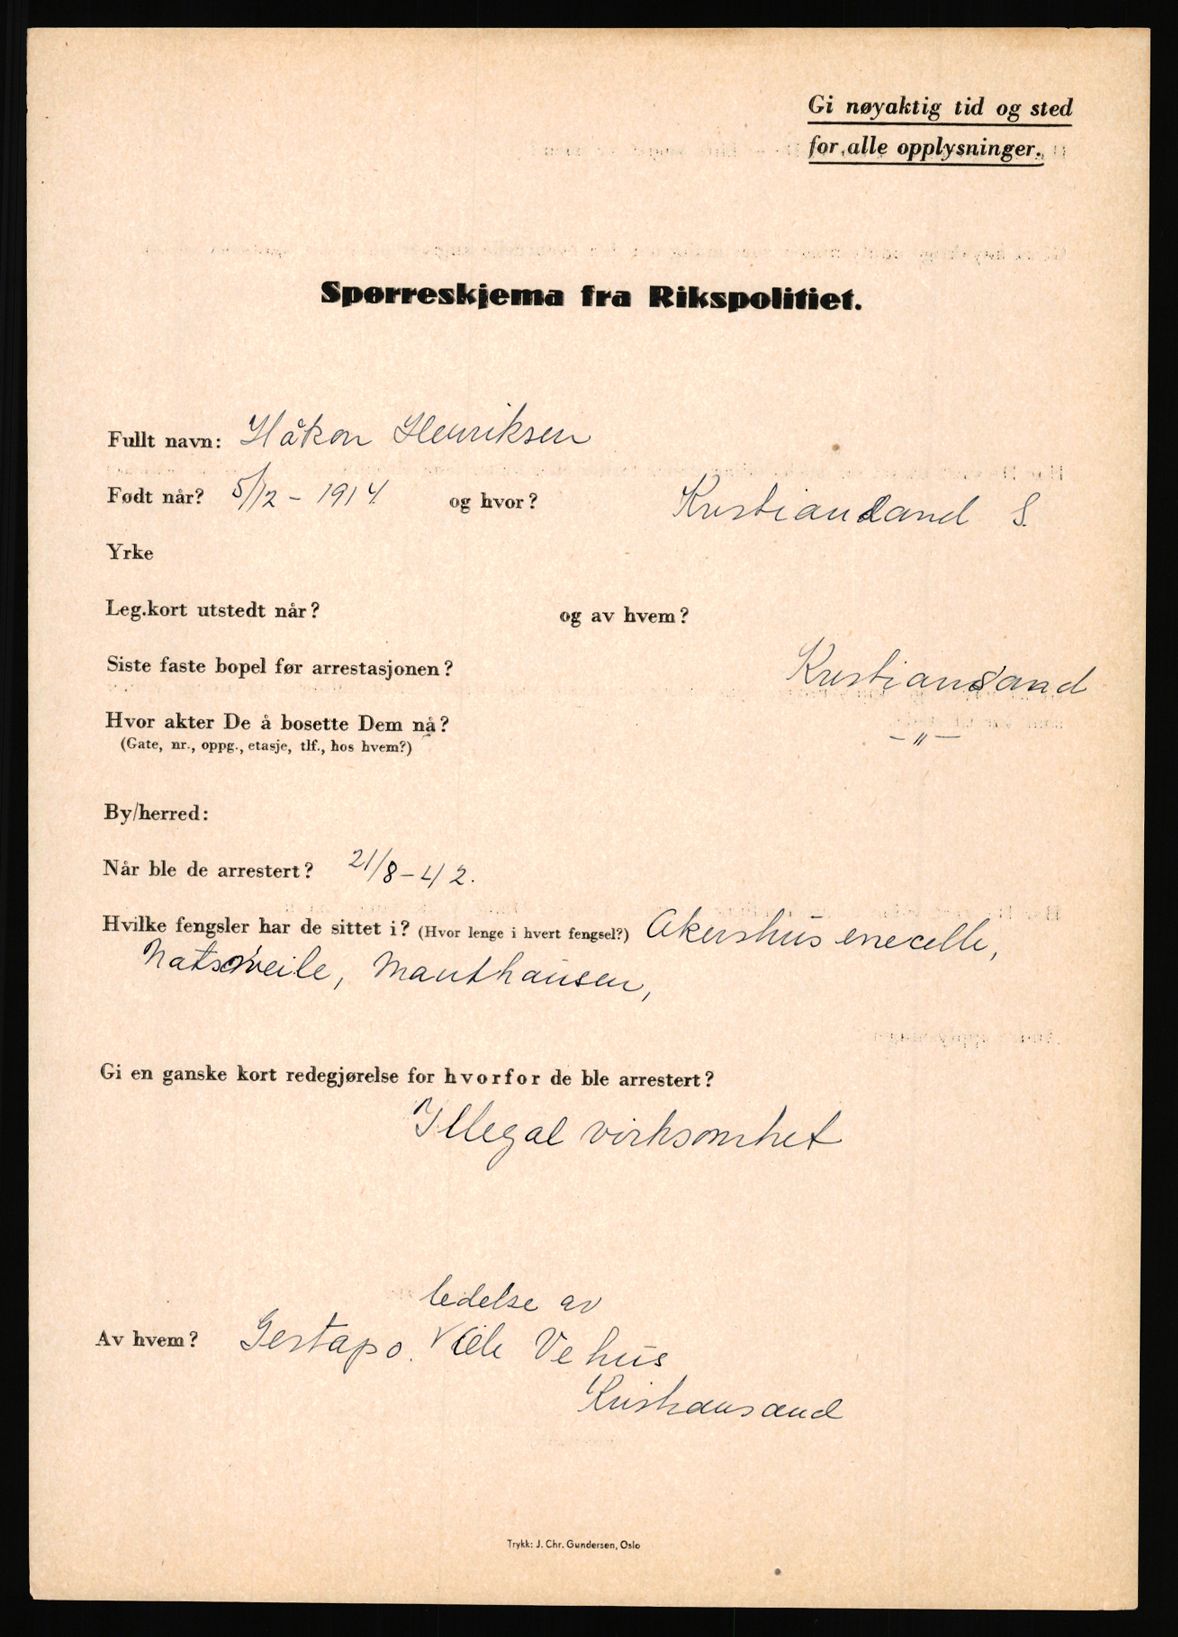 Gi nøyaktig tid og sted
for alle opplysninger.
Spørreskjema fra Rikspolitiet.
Fullt navn: Håkon Henriksen
Født når? 5/12 - 1914. og hvor? Kristiansand S.
Yrke
Leg.kort utstedt når? og av hvem?
Siste faste bopel før arrestasjonen? Kristiansand
Hvor akter De å bosette Dem nå? - " -
(Gate, nr., oppg., etasje, tlf., hos hvem?)
By/herred:
Når ble de arrestert? 21/8 - 42.
Hvilke fengsler har de sittet i? (Hvor lenge i hvert fengsel?) Akershus enecelle,
Natsweile, Mauthausen,
Gi en ganske kort redegjørelse for hvorfor de ble arrestert?
Illegal virksomhet
ledelse av
Av hvem? Gestapo. Ole Vehus
Kristiansand
Trykk: J. Chr. Gundersen, Oslo